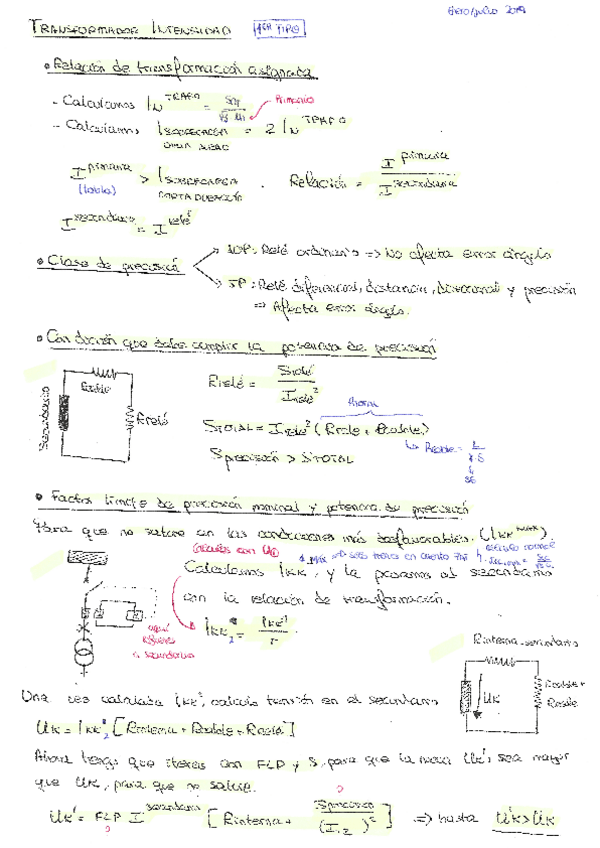 Enero/Julio 2019
TRANSFORMADOR INTENSIDAD 1ER TIPO
• Relación de transformación asignada
- Calculamos I_N^TRAFO = Sn / √3 Un Primario
- Calculamos I SOBRECARGA = 2 I_N^TRAFO
I^primaria (tabla) > I SOBRECARGA CORTA DURACIÓN . Relación = I^primaria / I^secundaria
I^secundario = I^relé
• Clase de precisión
→ 10P: Relé ordinario => No afecta error ángulo
→ 5P: Relé diferencial, distancia, direccional y precisión
=> Afecta error ángulo.
• Condición que debe cumplir la potencia de precisión
Secundario
Rcable
Rrelé
Rrelé = Srelé / Irelé²
STOTAL = Irelé² (Rrele + Rcable)
Rtotal
Rcable = L / K S
56
Sprecisión > STOTAL
• Factor límite de precisión nominal y potencia de precisión
Para que no sature en las condiciones más desfavorables. (Ikk max)
Calculamos Ikk, y la pasamos al secundario
con la relación de transformación.
Ikk2 = Ikk1 / r
a secundario
Rinterna secundario
Rcable +
Rrele
UK
Una vez calculada Ikk2, calculo tensión en el secundario
UK = Ikk2 [Rinterna + Rcable + Rrele]
Ahora tengo que iterar con FLP y S, para que la nueva UK' sea mayor
que UK, para que no sature.
UK' = FLP I^secundario [Rinterna + Sprecision / (I2)²] => hasta UK' > UK